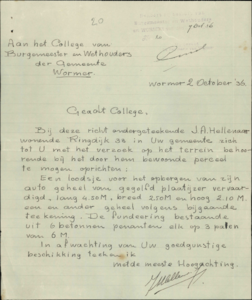 20
Aan het College van
Burgemeester en Wethouders
der Gemeente
Wormer
Wormer 2 October '36
Geacht College.
Bij deze richt ondergeteekende J.A.
wonende Ringdijk 38 in Uw gemeente zich
tot U met het verzoek op het terrein behoo-
rende bij het door hem bewoonde perceel
te mogen oprichten.
Een loodsje voor het opbergen van zijn
auto geheel van gegolfd plaatijzer vervaar-
digd, lang 4.50M, breed 2.50M en hoog 2.10M
een en ander geheel volgens bijgaande
teekening. De fundeering bestaande
uit 6 betonnen penanten elk op 2 palen
van 6 M.
In afwachting van Uw goedgunstige
beschikking teekent
met de meeste Hoogachting.